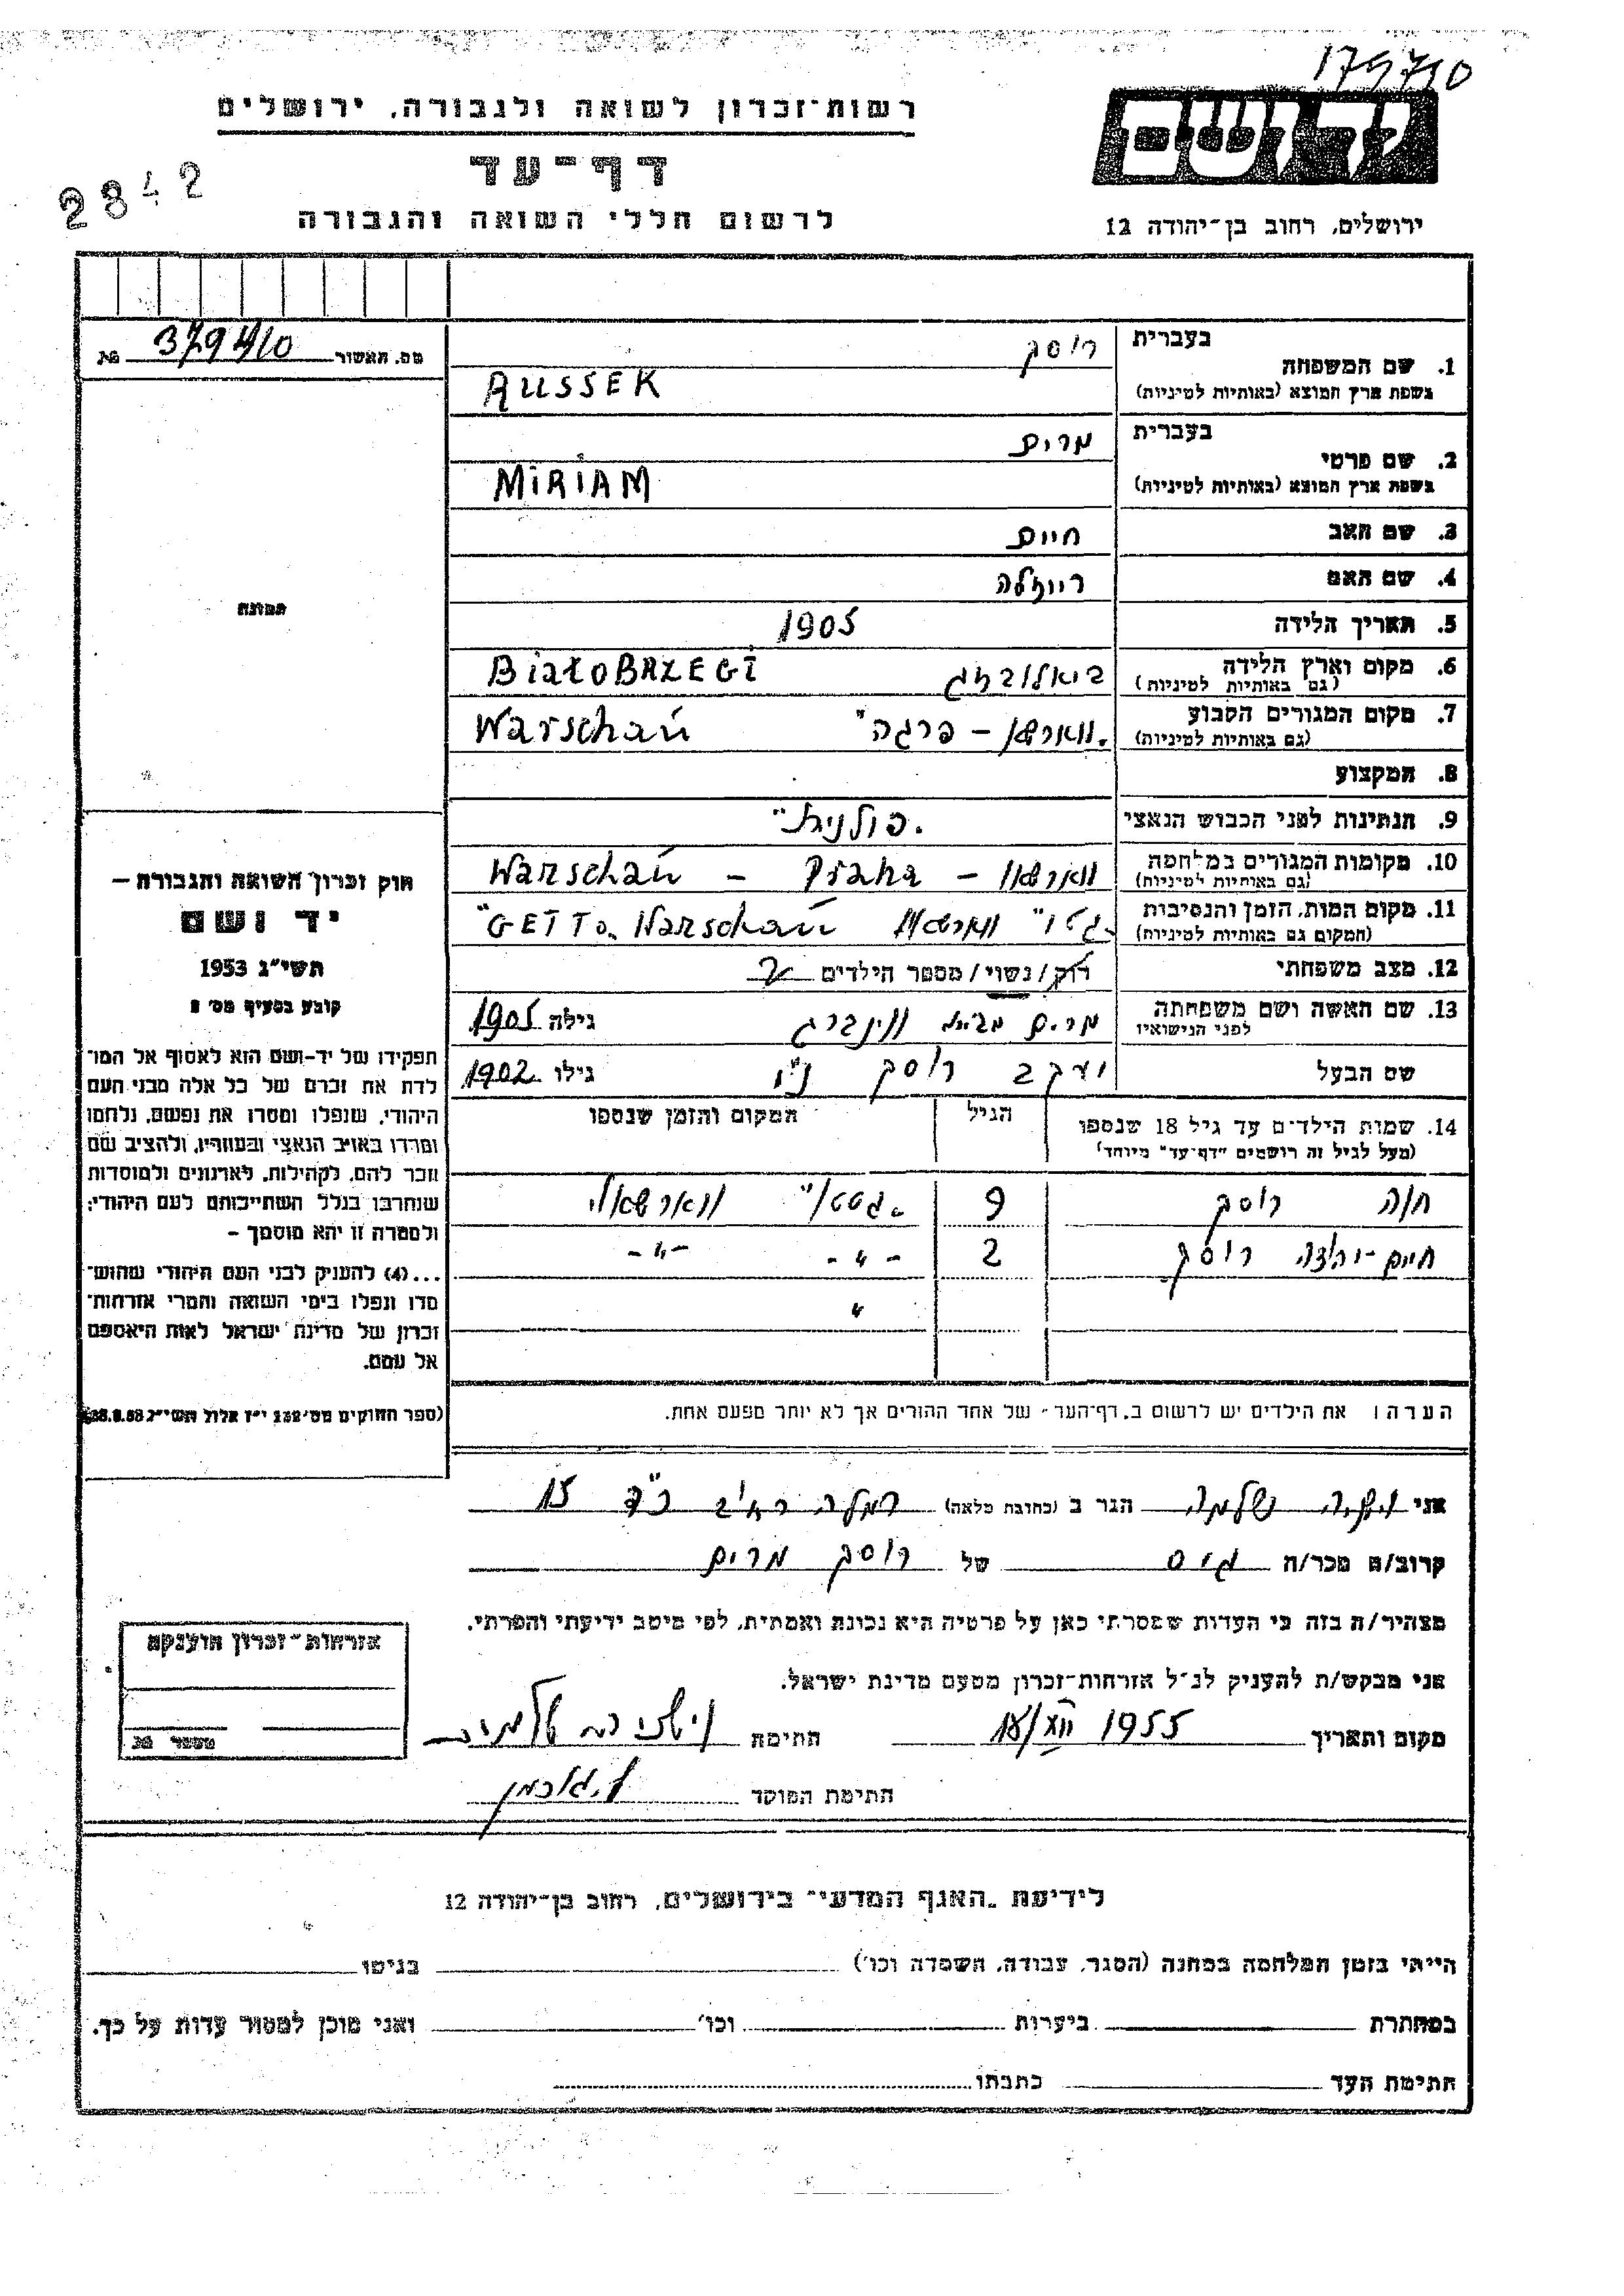 179710
רשות-זכרון לשואה ולגבורה, ירושלים
דף-עד
לרשום חללי השואה והגבורה
2842
יד ושם
ירושלים, רחוב בן-יהודה 12
מס. האשור 379410
בעברית
1. שם המשפחה רוסק
בשפת ארץ המוצא (באותיות לטיניות) RUSSEK
בעברית
2. שם פרטי מרים
בשפת ארץ המוצא (באותיות לטיניות) MiRiAM
3. שם האב חיים
4. שם האם רייזלה
5. תאריך הלידה 1905
6. מקום וארץ הלידה
(גם באותיות לטיניות) BiałoBRZEGI
7. מקום המגורים הקבוע ווארשו – פרגה" Warschau
(גם באותיות לטיניות)
8. המקצוע
9. הנתינות לפני הכבוש הנאצי "פולנית"
10. מקומות המגורים במלחמה ווארשוי – Praha – Warschau
(גם באותיות לטיניות)
11. מקום המות, הזמן והנסיבות "גטו" ווארשוי "GETTo. Warschau
(המקום גם באותיות לטיניות)
12. מצב משפחתי רוק/נשוי/מספר הילדים 2
13. שם האשה ושם משפחתה מרים מבית ויינברג גילה 1905
לפני הנישואין
שם הבעל יעקב רוסק נ"י גילו 1902
14. שמות הילדים עד גיל 18 שנספו הגיל המקום והזמן שנספו
(מעל לגיל זה רושמים "דף-עד" מיוחד)
חוה רוסק 9 "גטו" ווארשאווי
חיים - רוסק 2 -"- -"-
"
הערה: את הילדים יש לרשום ב"דף-העד" של אחד ההורים אך לא יותר מפעם אחת.
תמונה
חוק זכרון השואה והגבורה –
יד ושם
תשי"ג 1953
קובע בסעיף מס' 2
תפקידו של יד-ושם הוא לאסוף אל המו-
לדת את זכרם של כל אלה מבני העם
היהודי, שנפלו ומסרו את נפשם, נלחמו
ומרדו באויב הנאצי ובעוזריו, ולהציב שם
וזכר להם, לקהילות, לארגונים ולמוסדות
שנחרבו בגלל השתייכותם לעם היהודי;
ולמטרה זו יהא מוסמך –
...(4) להעניק לבני העם היהודי שהוש-
מדו ונפלו בימי השואה והמרי אזרחות-
זכרון של מדינת ישראל לאות היאספם
אל עמם.
(ספר החוקים מס' 132 י"ז אלול תשי"ג 28.8.53)
אני שלמה הגר ב (כתובת מלאה) רמלה 15
קרוב/ה מכר/ה גיס של רוסק מרים
מצהיר/ה בזה כי העדות שמסרתי כאן על פרטיה היא נכונה ואמתית, לפי מיטב ידיעתי והכרתי.
אני מבקש/ת להעניק לנ"ל אזרחות-זכרון מטעם מדינת ישראל.
מקום ותאריך 18/XII 1955 חתימה
חתימת הפוקד
אזרחות-זכרון הוענקה
מספר
לידיעת "האגף המדעי" בירושלים, רחוב בן-יהודה 12
הייתי בזמן המלחמה במחנה (הסגר, עבודה, השמדה וכו') בגיטו
במחתרת ביערות וכו' ואני מוכן למסור עדות על כך.
חתימת העד כתבתו